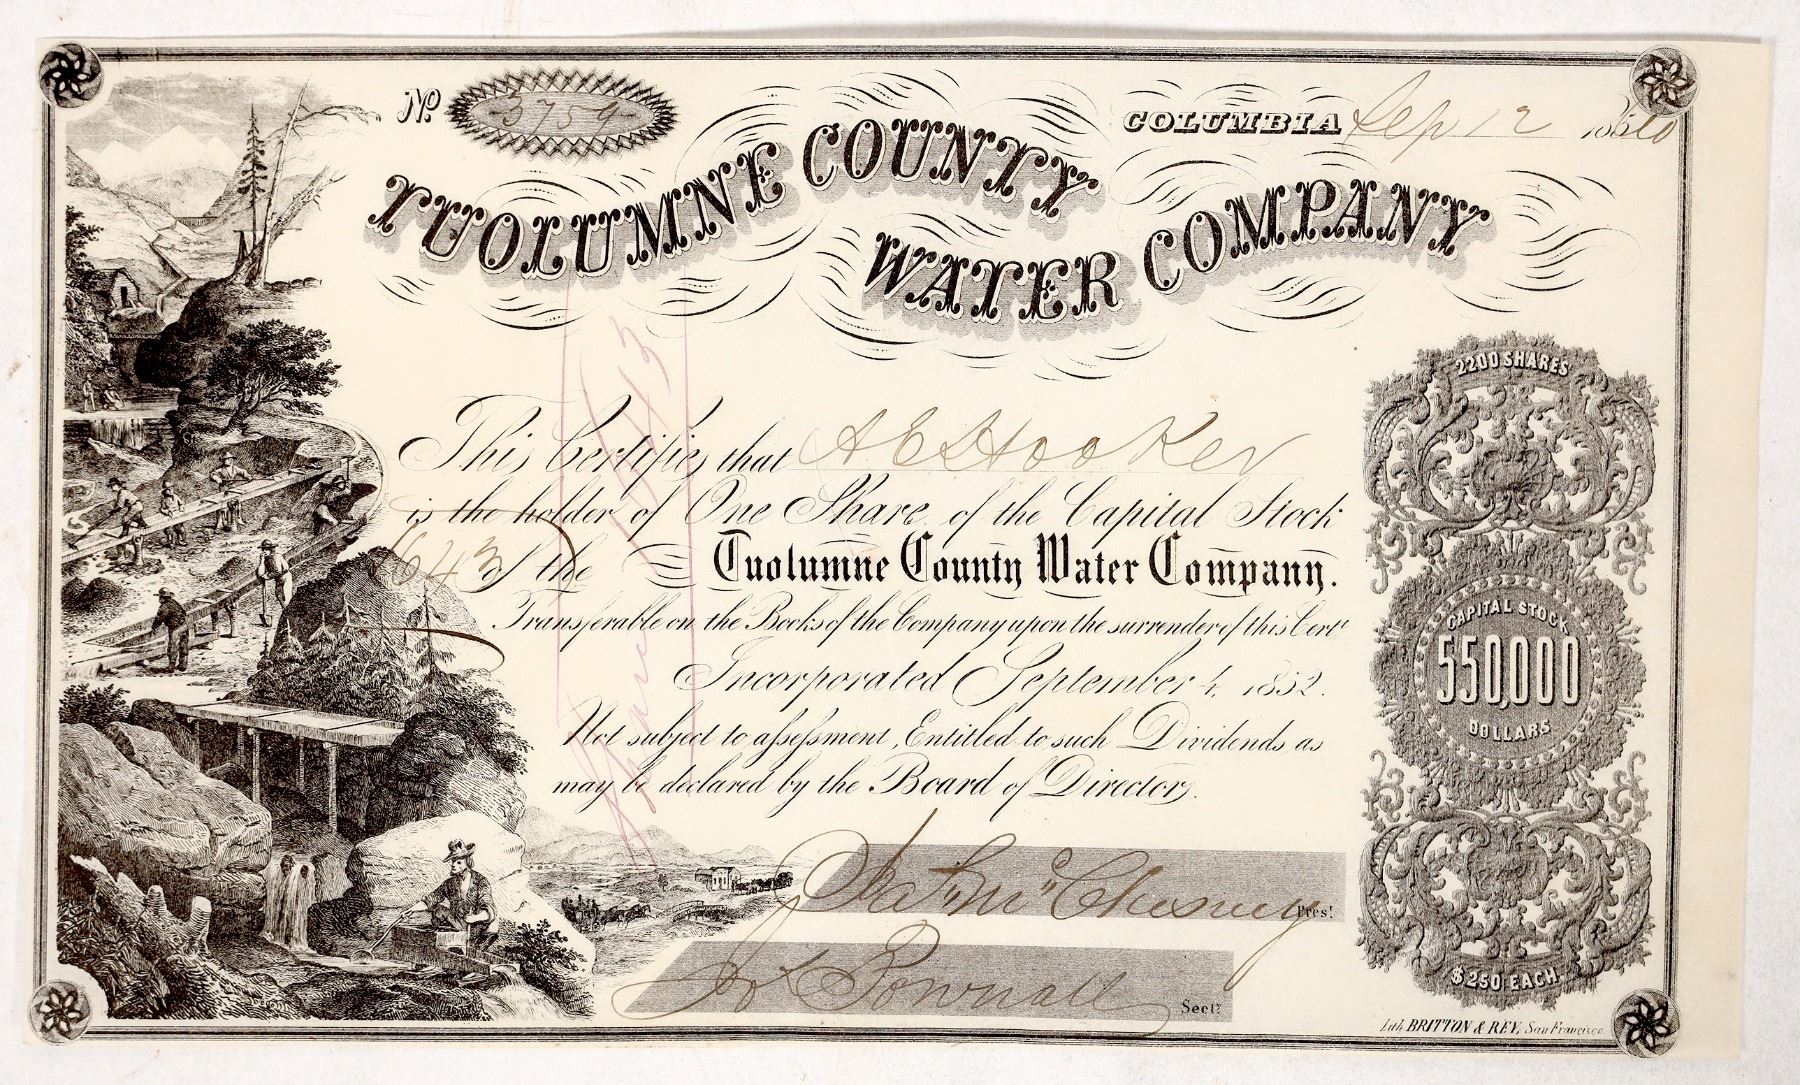 No. 3759
COLUMBIA Sep 12 1860
TUOLUMNE COUNTY
WATER COMPANY
This Certifies that A E Hooker
is the holder of One Share of the Capital Stock
643 of the Tuolumne County Water Company.
Transferable on the Books of the Company upon the surrender of this Cert.
Incorporated September 4, 1852.
Not subject to assessment, Entitled to such Dividends as
may be declared by the Board of Directors.
Pres!
Jos Pownall Secty
2200 SHARES
CAPITAL STOCK
550,000
DOLLARS
$250 EACH
Lith. BRITTON & REY, San Francisco.